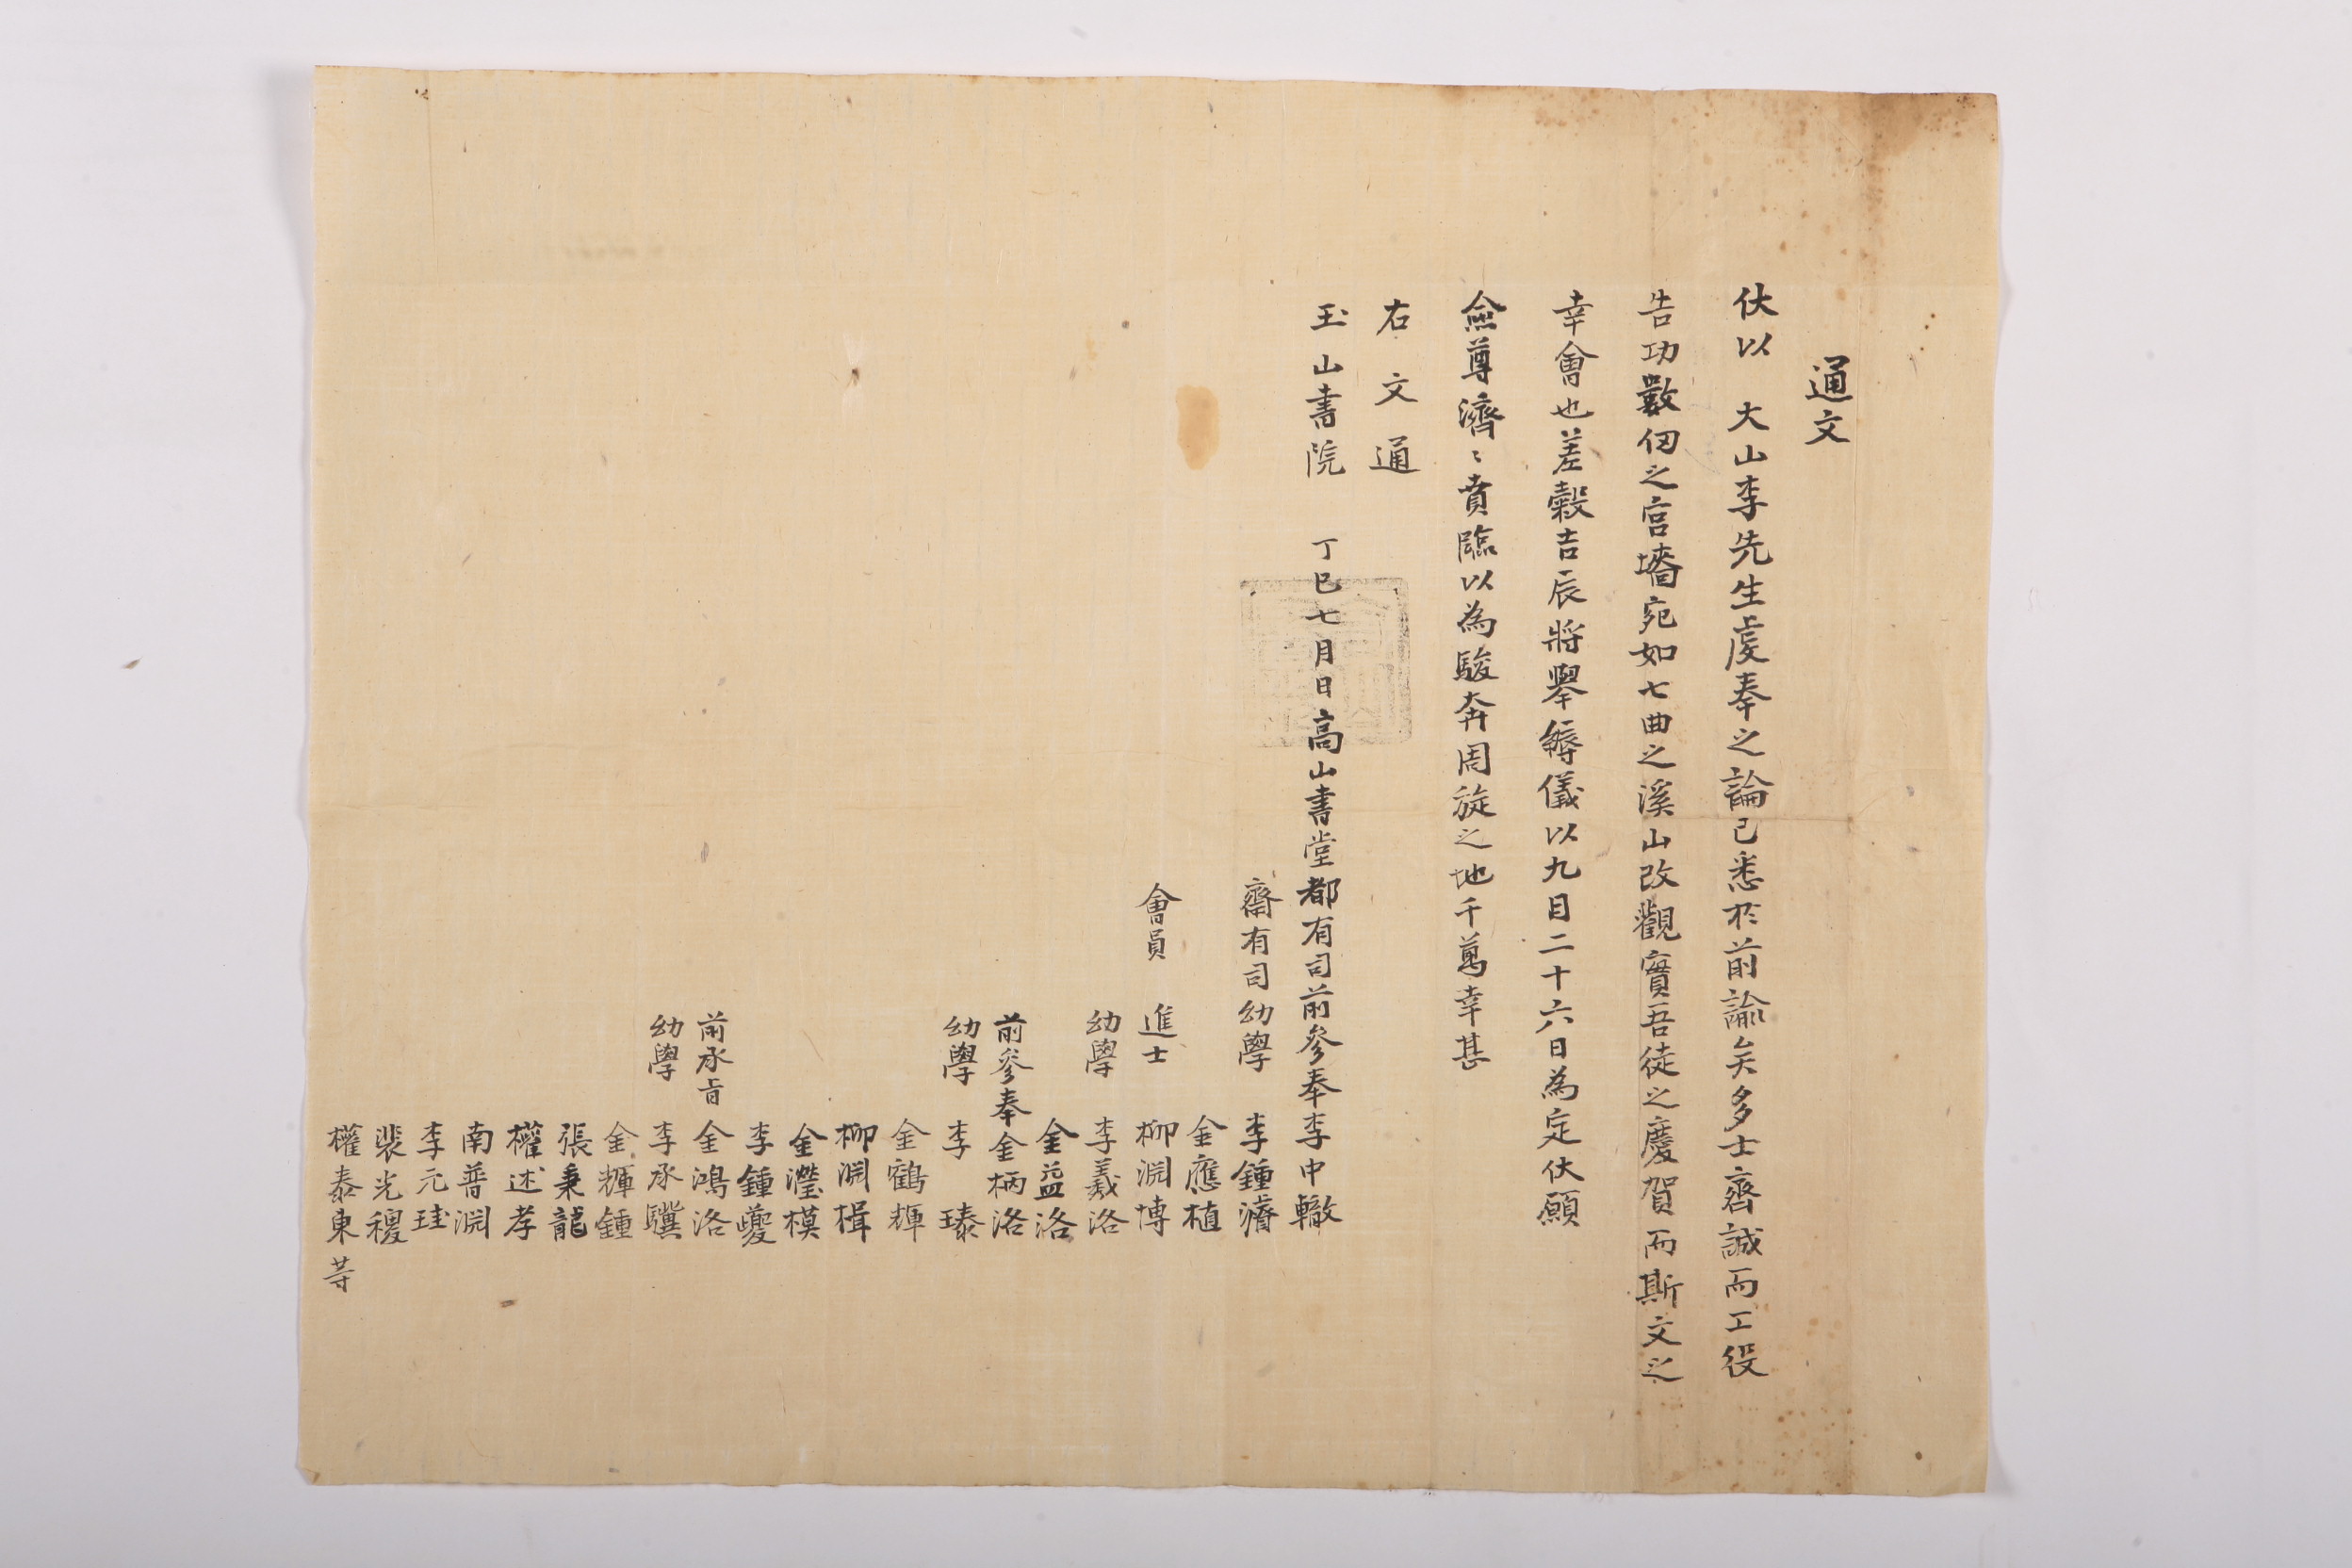 通文
伏以 大山李先生虔奉之論已悉於前諭矣多士齊誠而工役
告功數仞之宮墻宛如七曲之溪山改觀實吾徒之慶賀而斯文之
幸會也差穀吉辰將擧縟儀以九月二十六日為定伏願
僉尊濟〻賁臨以為駿奔周旋之地千萬幸甚
右文通
玉山書院 丁巳七月日高山書堂都有司前參奉李中轍
齋有司幼學 李鍾濳
金應植
會員 進士 柳淵博
幼學 李羲洛
金益洛
前參奉 金柄洛
幼學 李 瑧
金鶴輝
柳淵楫
金瀅模
李鍾夔
前承旨 金鴻洛
幼學 李承驥
金輝鍾
張秉龍
權述孝
南普淵
李元珪
裴光稷
權泰東 等